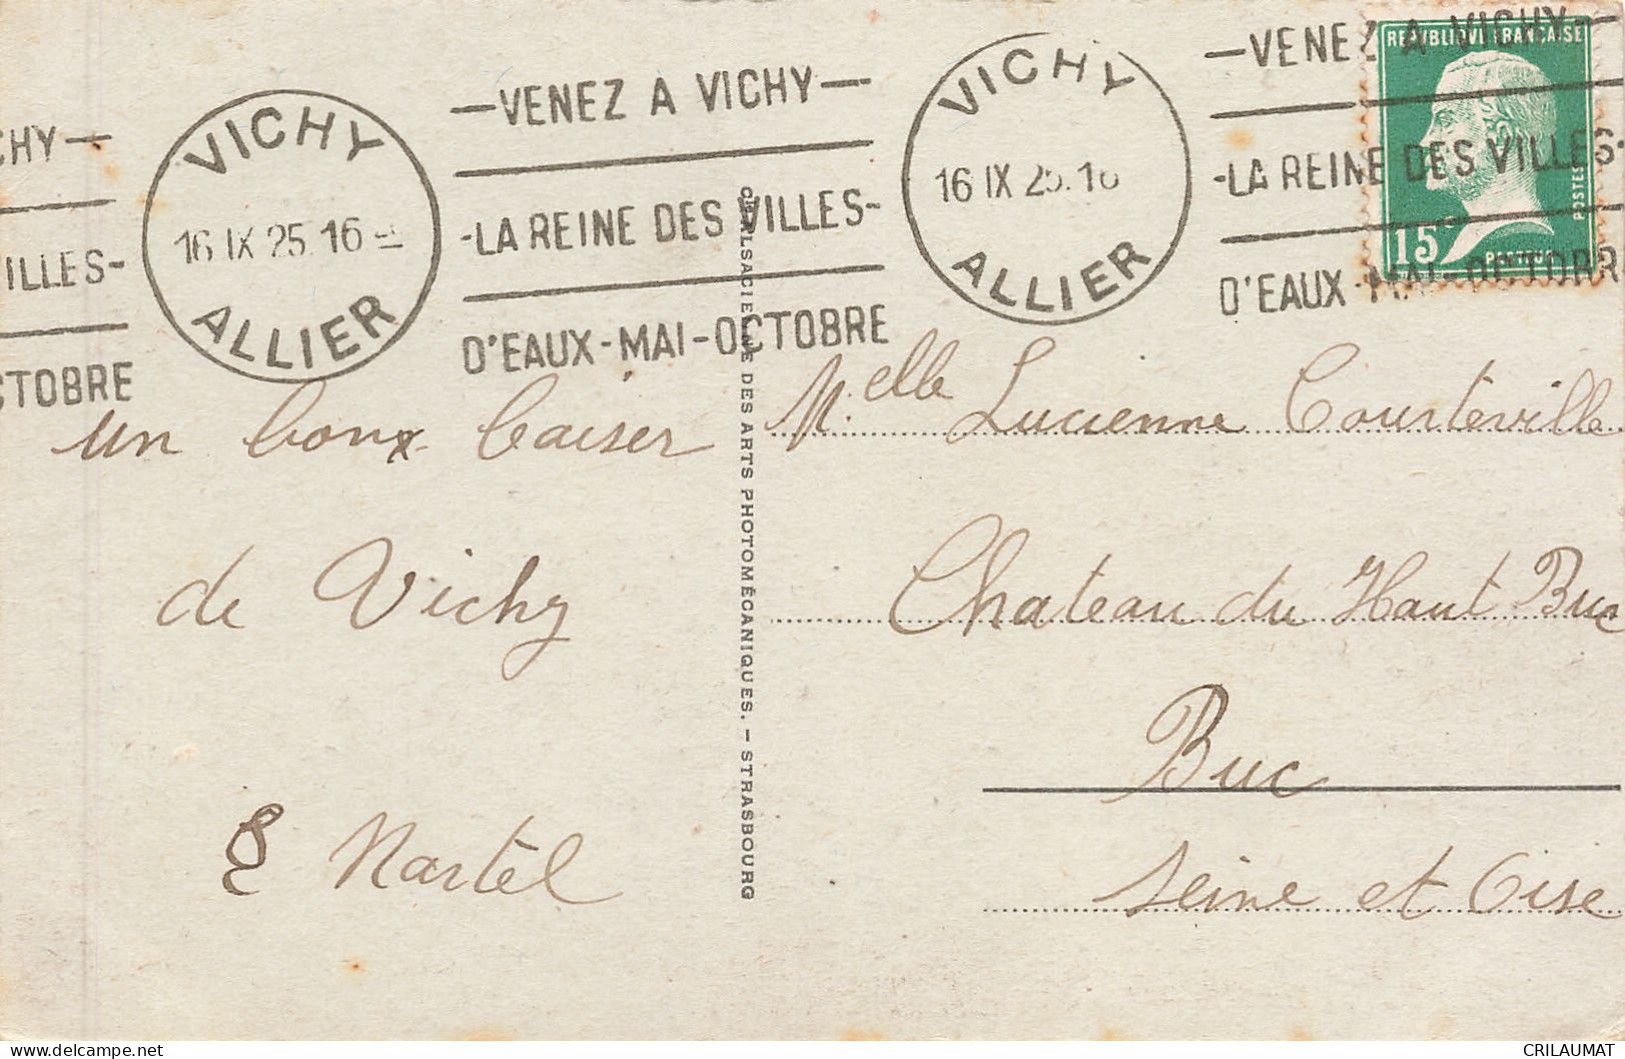 CHY —
VILLES-
CTOBRE
VICHY
16 IX 25. 16
ALLIER
— VENEZ A VICHY —
-LA REINE DES VILLES-
D'EAUX - MAI - OCTOBRE
VICHY
16 IX 25. 16
ALLIER
— VENEZ A VICHY —
-LA REINE DES VILLES-
D'EAUX - MAI - OCTOBRE
REPVBLIQVE FRANÇAISE
POSTES
15
PASTEUR
un bon baiser
de Vichy
Martel
Cie ALSACIENNE DES ARTS PHOTOMÉCANIQUES. — STRASBOURG
M.elle Lucienne Courteville
Chateau du Haut Buc
Buc
Seine et Oise
CRILAUMAT